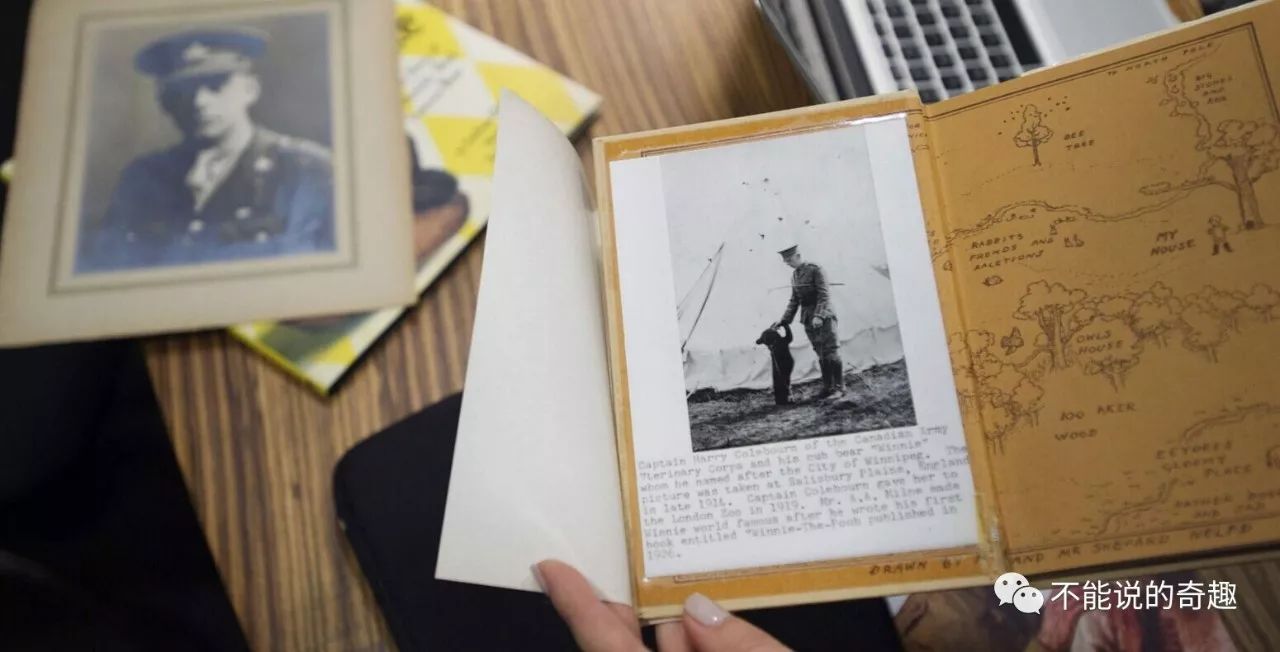 Captain Harry Colebourn of the Canadian Army
Vterinary Corps and his cub bear "Winnie"
whom he named after the City of Winnipeg. The
picture was taken at Salisbury Plains, England
in late 1914. Captain Colebourn gave her to
the London Zoo in 1919. Mr. A.A. Milne made
Winnie world famous after he wrote his first
book entitled "Winnie-The-Pooh published in
1926.
TO NORTH POLE
BIG
STONES
AND
ROX
BEE
TREE
RABBITS
FRENDS AND
RALETIONS
MY
HOUSE
OWLS
HOUSE
100 AKER
WOOD
EEYORES
GLOOMY
PLACE
DRAWN BY
AND MR SHEPARD HELPD
不能说的奇趣